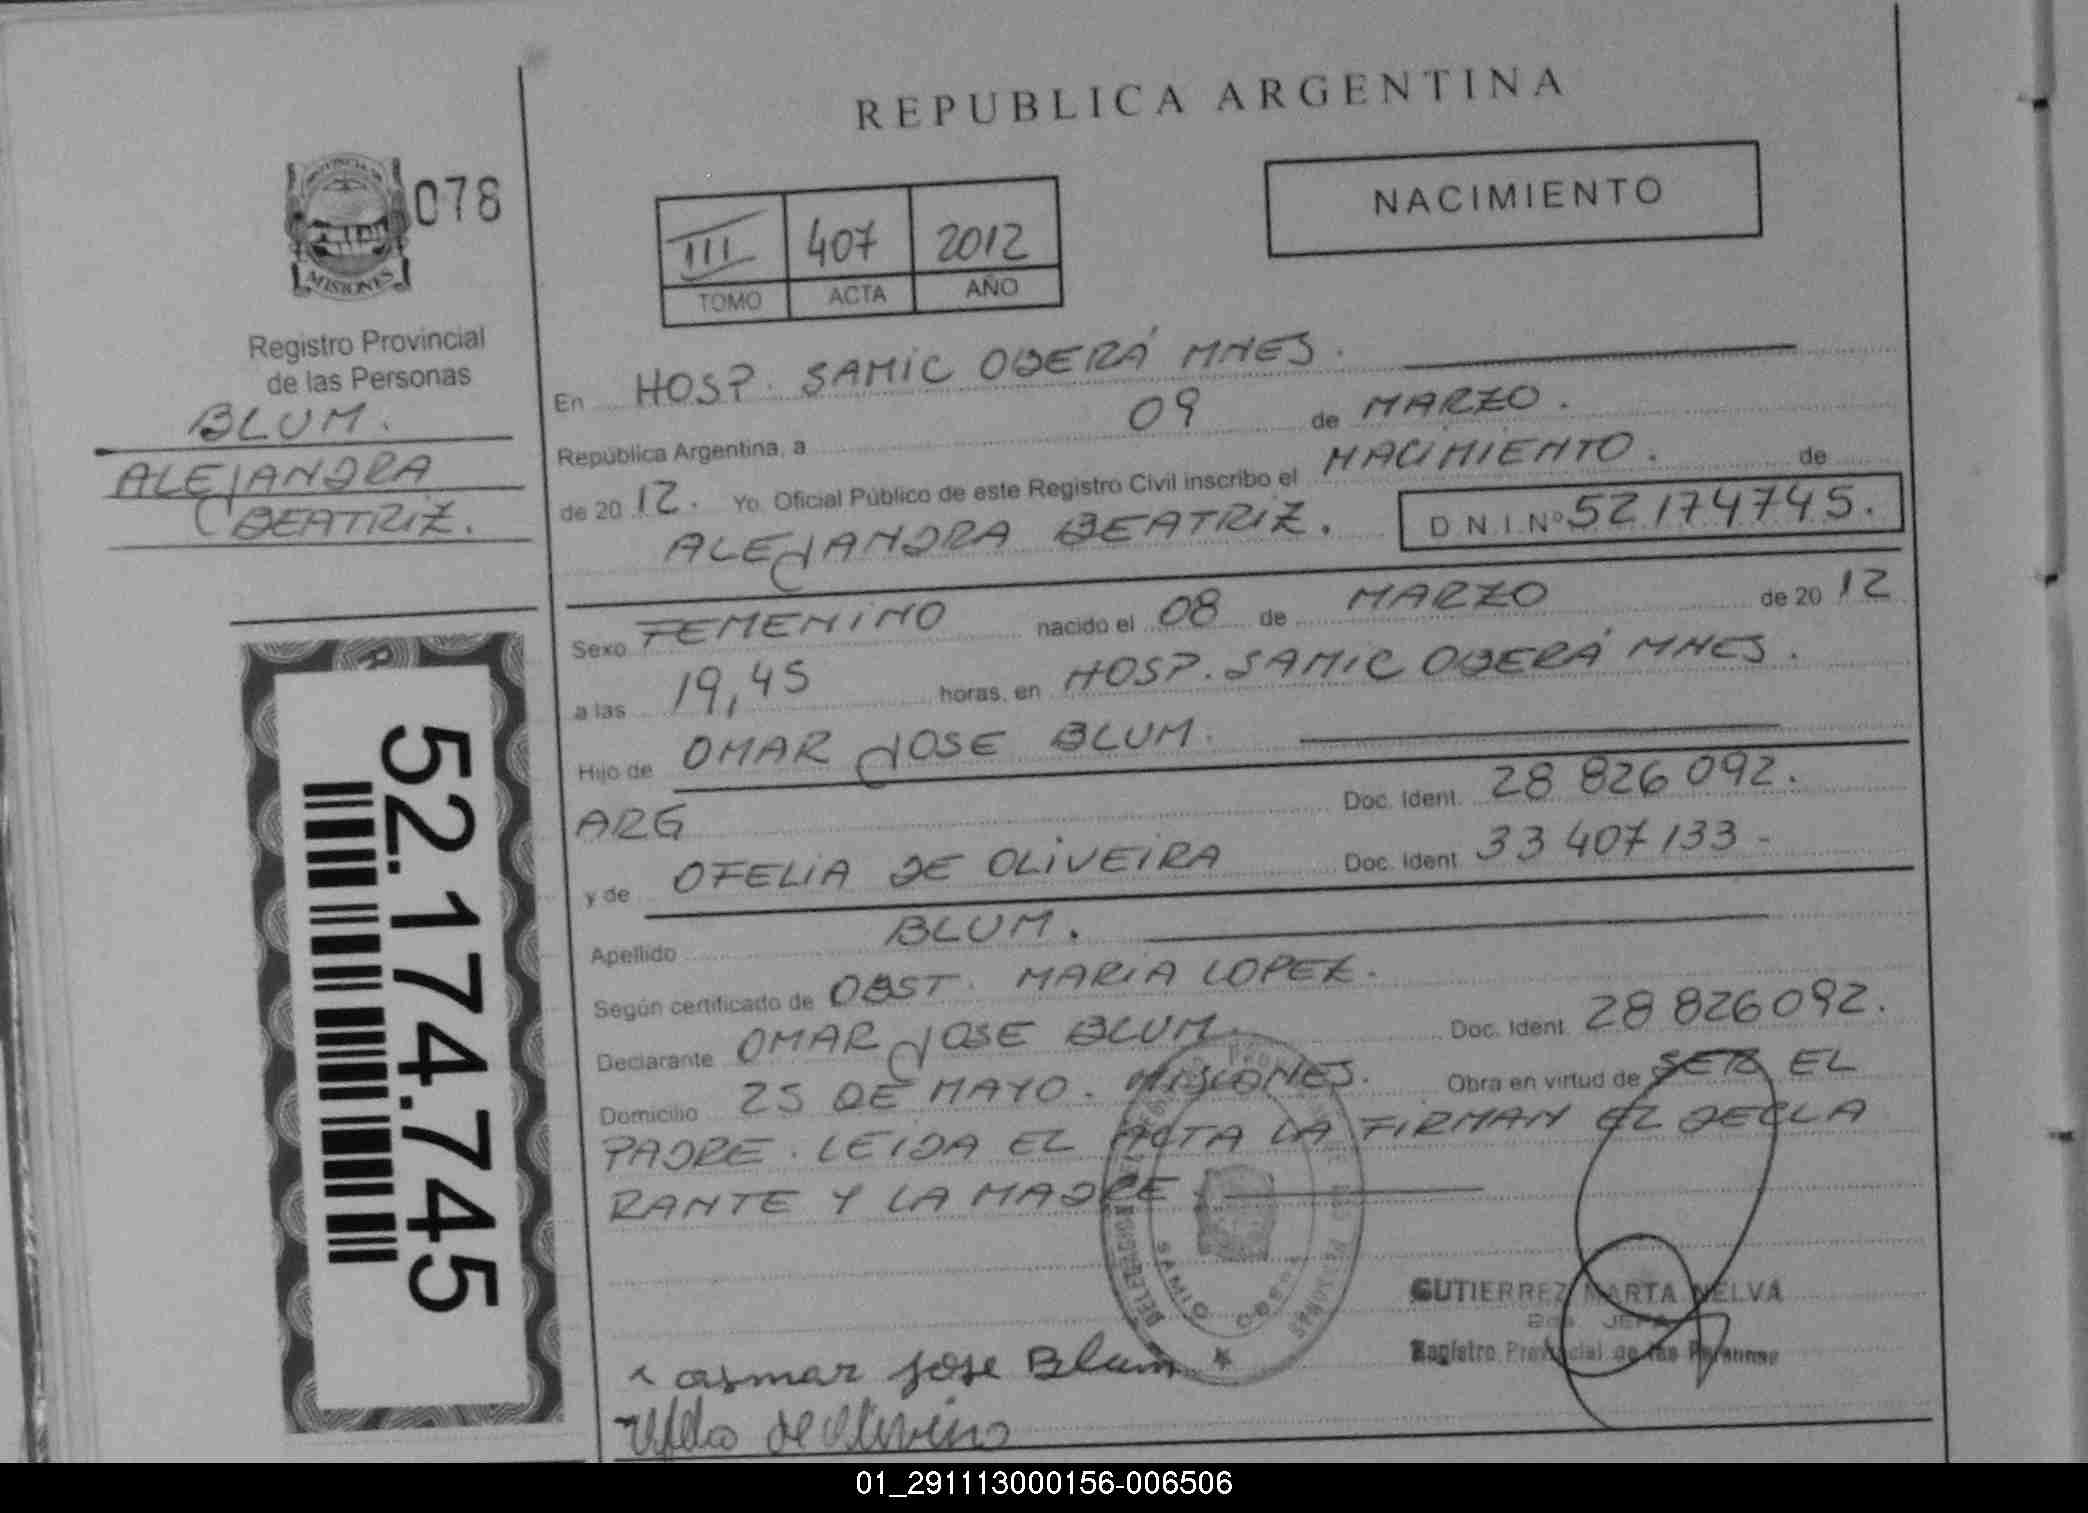 REPUBLICA ARGENTINA
078
MISIONES
Registro Provincial
de las Personas
BLUM.
ALEJANDRA
BEATRIZ.
52.174.745
III 407 2012
TOMO ACTA AÑO
NACIMIENTO
En HOSP. SAMIC OBERÁ MNES.
República Argentina, a 09 de MARZO.
de 20 12. Yo, Oficial Público de este Registro Civil inscribo el NACIMIENTO. de
ALEJANDRA BEATRIZ. D.N.I. Nº 52174745.
Sexo FEMENINO nacido el 08 de MARZO de 20 12
a las 19,45 horas, en HOSP. SAMIC OBERÁ MNES.
Hijo de OMAR JOSE BLUM.
ARG Doc. Ident. 28 826 092.
y de OFELIA DE OLIVEIRA Doc. Ident 33 407 133 -
Apellido BLUM.
Según certificado de OBST. MARIA LOPEZ.
Declarante OMAR JOSE BLUM. Doc. Ident. 28 826092.
Domicilio 25 DE MAYO. MISIONES. Obra en virtud de SER EL
PADRE. LEIDA EL ACTA LA FIRMAN EL DECLA
RANTE Y LA MADRE
GUTIERREZ MARTA NELVA
JEFA
Registro Provincial de las Personas
Jose Blum
de Oliveira
01_291113000156-006506